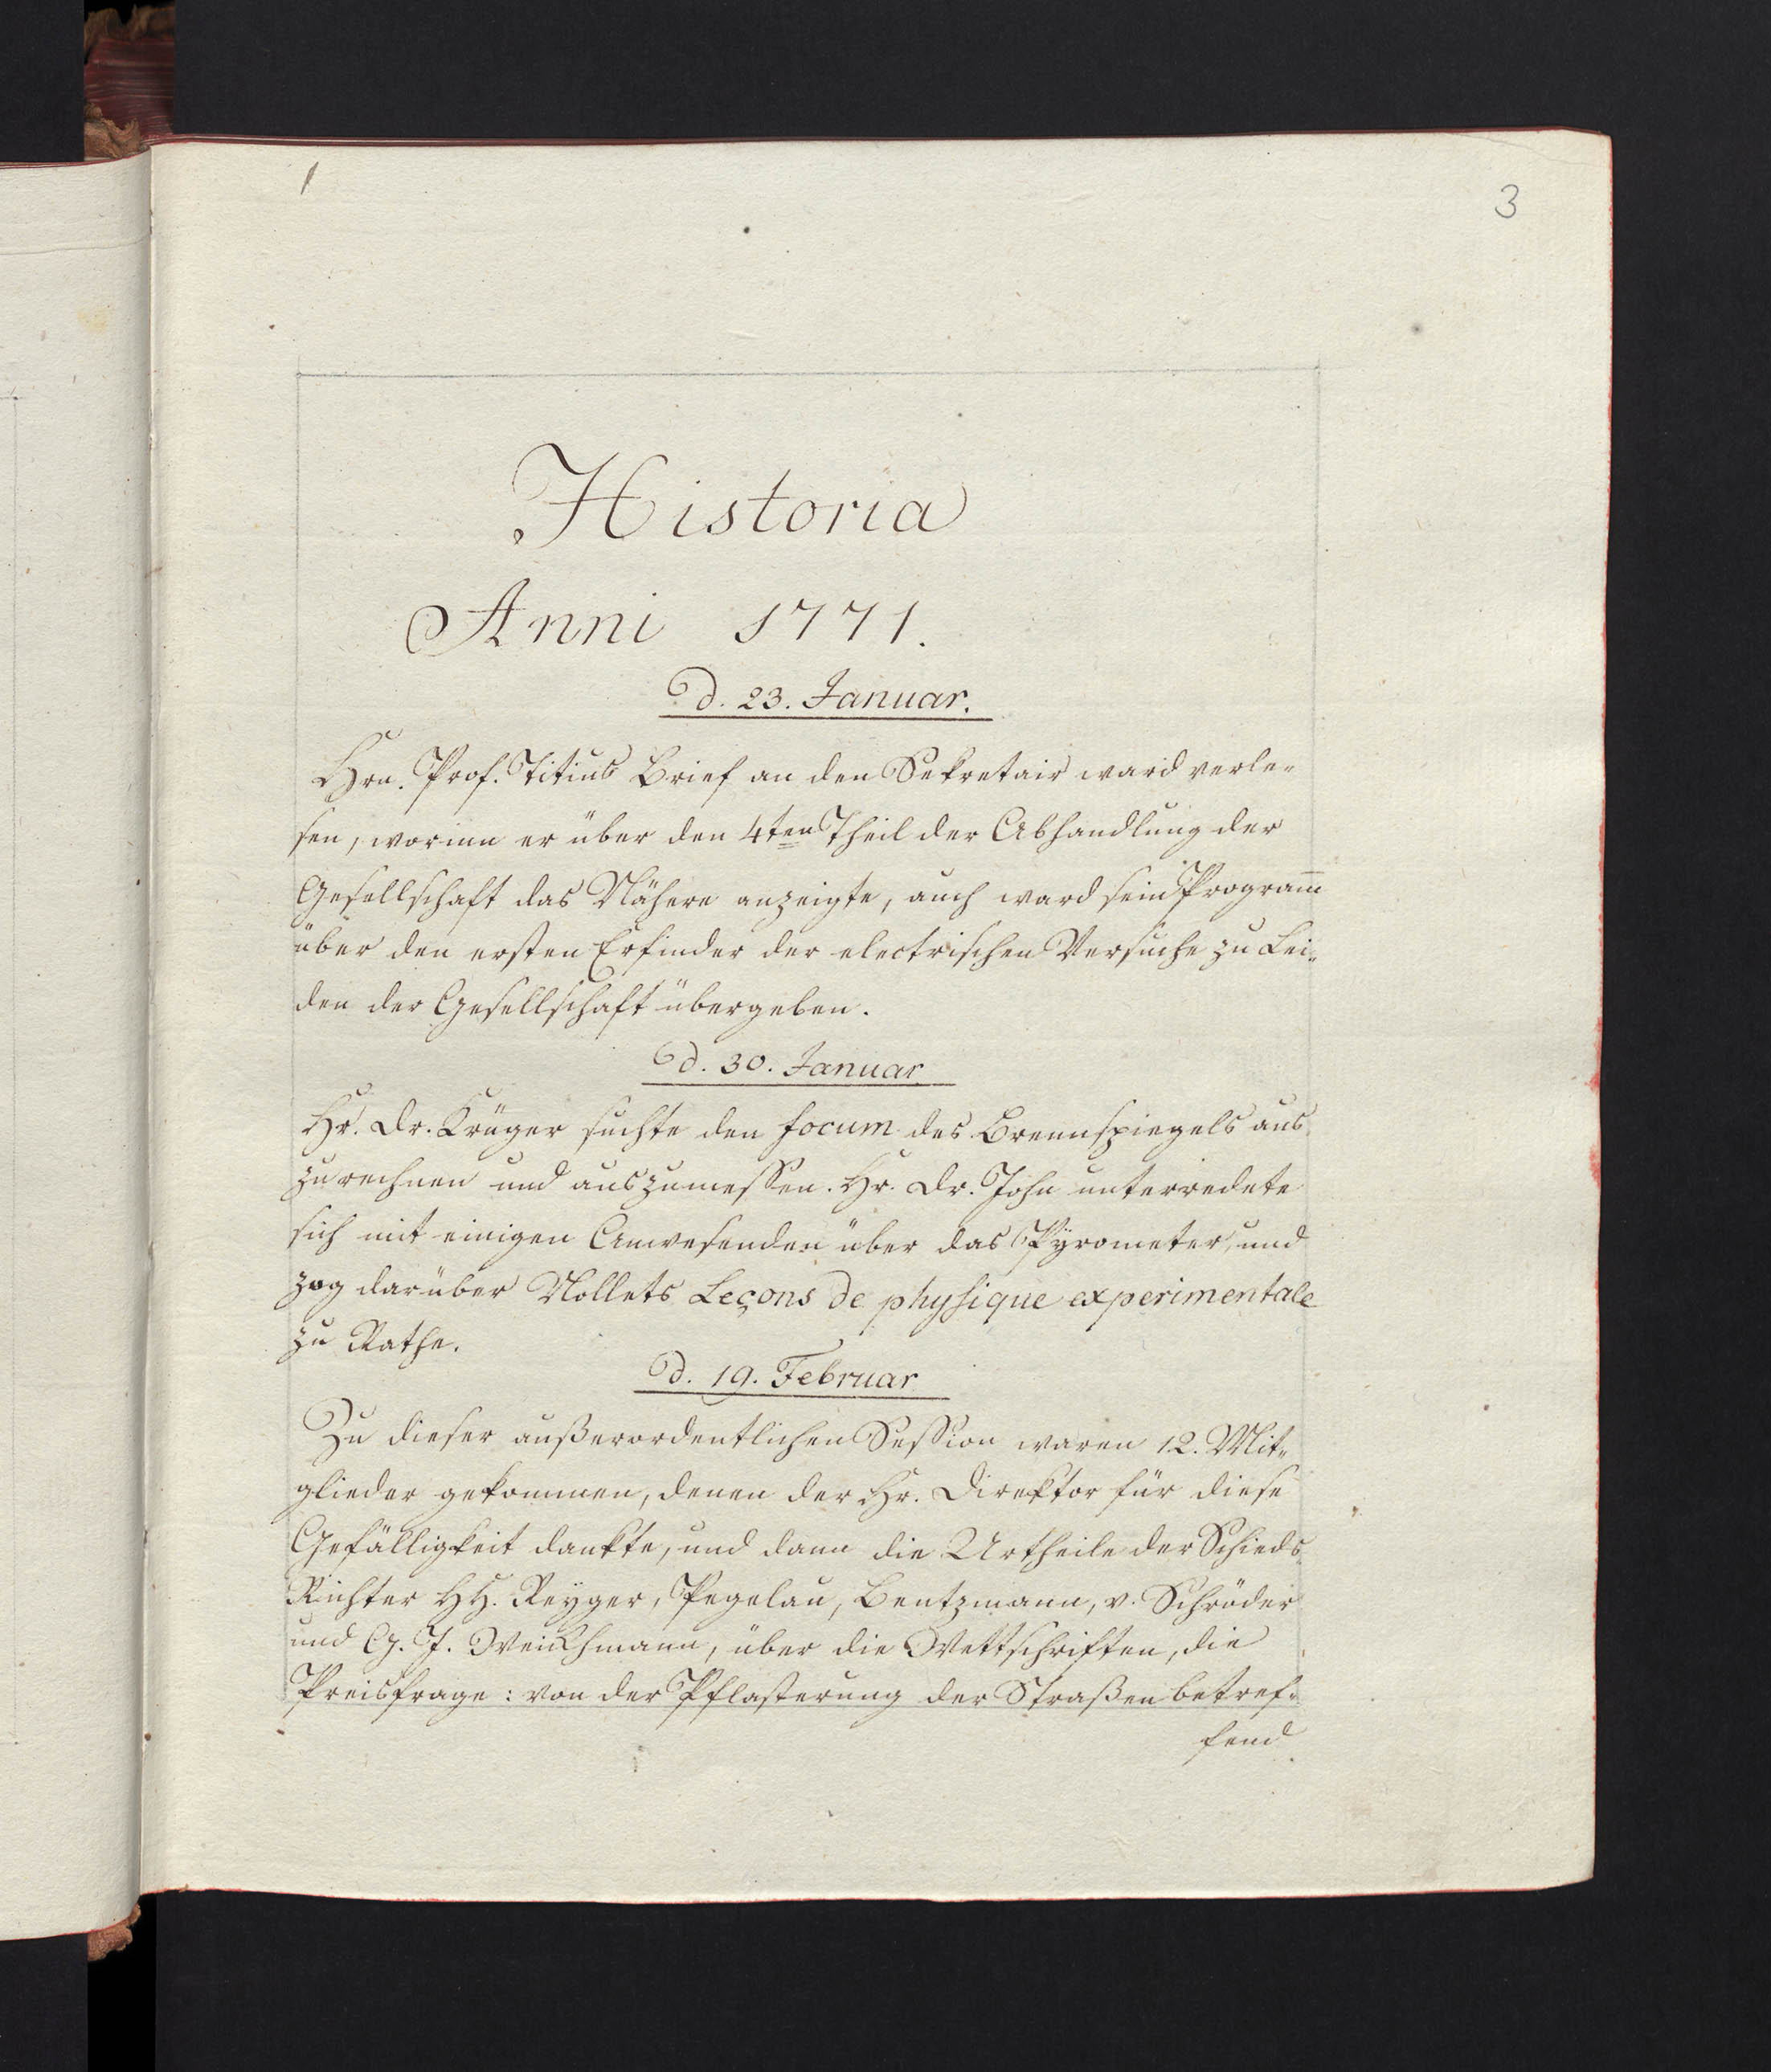 1
3
Historia
Anni 1771.
d. 23. Januar.
Hrn. Prof. Titius Brief an den Sekretair ward verle-
sen, worinn er über den 4ten Theil der Abhandlung der
Gesellschaft das Nähere anzeigte, auch ward sein Program̅
über den ersten Erfinder der electrischen Versuche zu Lei-
den der Gesellschaft übergeben.
d. 30. Januar
Hr. Dr. Krüger suchte den focum des Brennspiegels aus
zurechnen und auszumessen. Hr. Dr. John unterredete
sich mit einigen Anwesenden über das Pÿrometer, und
zog darüber Nollets Leçons de physique experimentale
zu Rathe.
d. 19. Februar
Zu dieser außerordentlichen Session waren 12. Mit-
glieder gekommen, denen der Hr. Direktor für diese
Gefälligkeit dankte, und dann die Urtheile der Schieds
Richter HH. Reyger, Pegelau, Bentzmann, v. Schröder
und G. J. Weickhmann, über die Wettschriften, die
Preisfrage: von der Pflasterung der Straßen betref-
fend